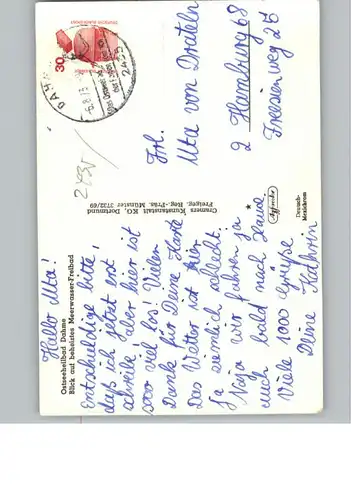 Hallo Uta!
Ostseeheilbad Dahme
Blick auf beheiztes Meerwasser-Freibad
Entschuldige bitte!
daß ich jetzt erst
schreibe aber hier ist
sooo viel los! Vielen
Dank für Deine Karte
Das Wetter ist hier
ja ziemlich schlecht.
Naja wir fahren ja
auch bald nach Hause.
Viele 1000 Grüße.
Deine Kathrin
Cramers Kunstanstalt KG. Dortmund
Freigeg. Reg.-Präs. Münster 3732/69
Deutsch-
Mexichrom
Frl.
Uta von Drateln
2 Hamburg 68
Freesienweg 25
30
DAHME
-6.8.73
2435